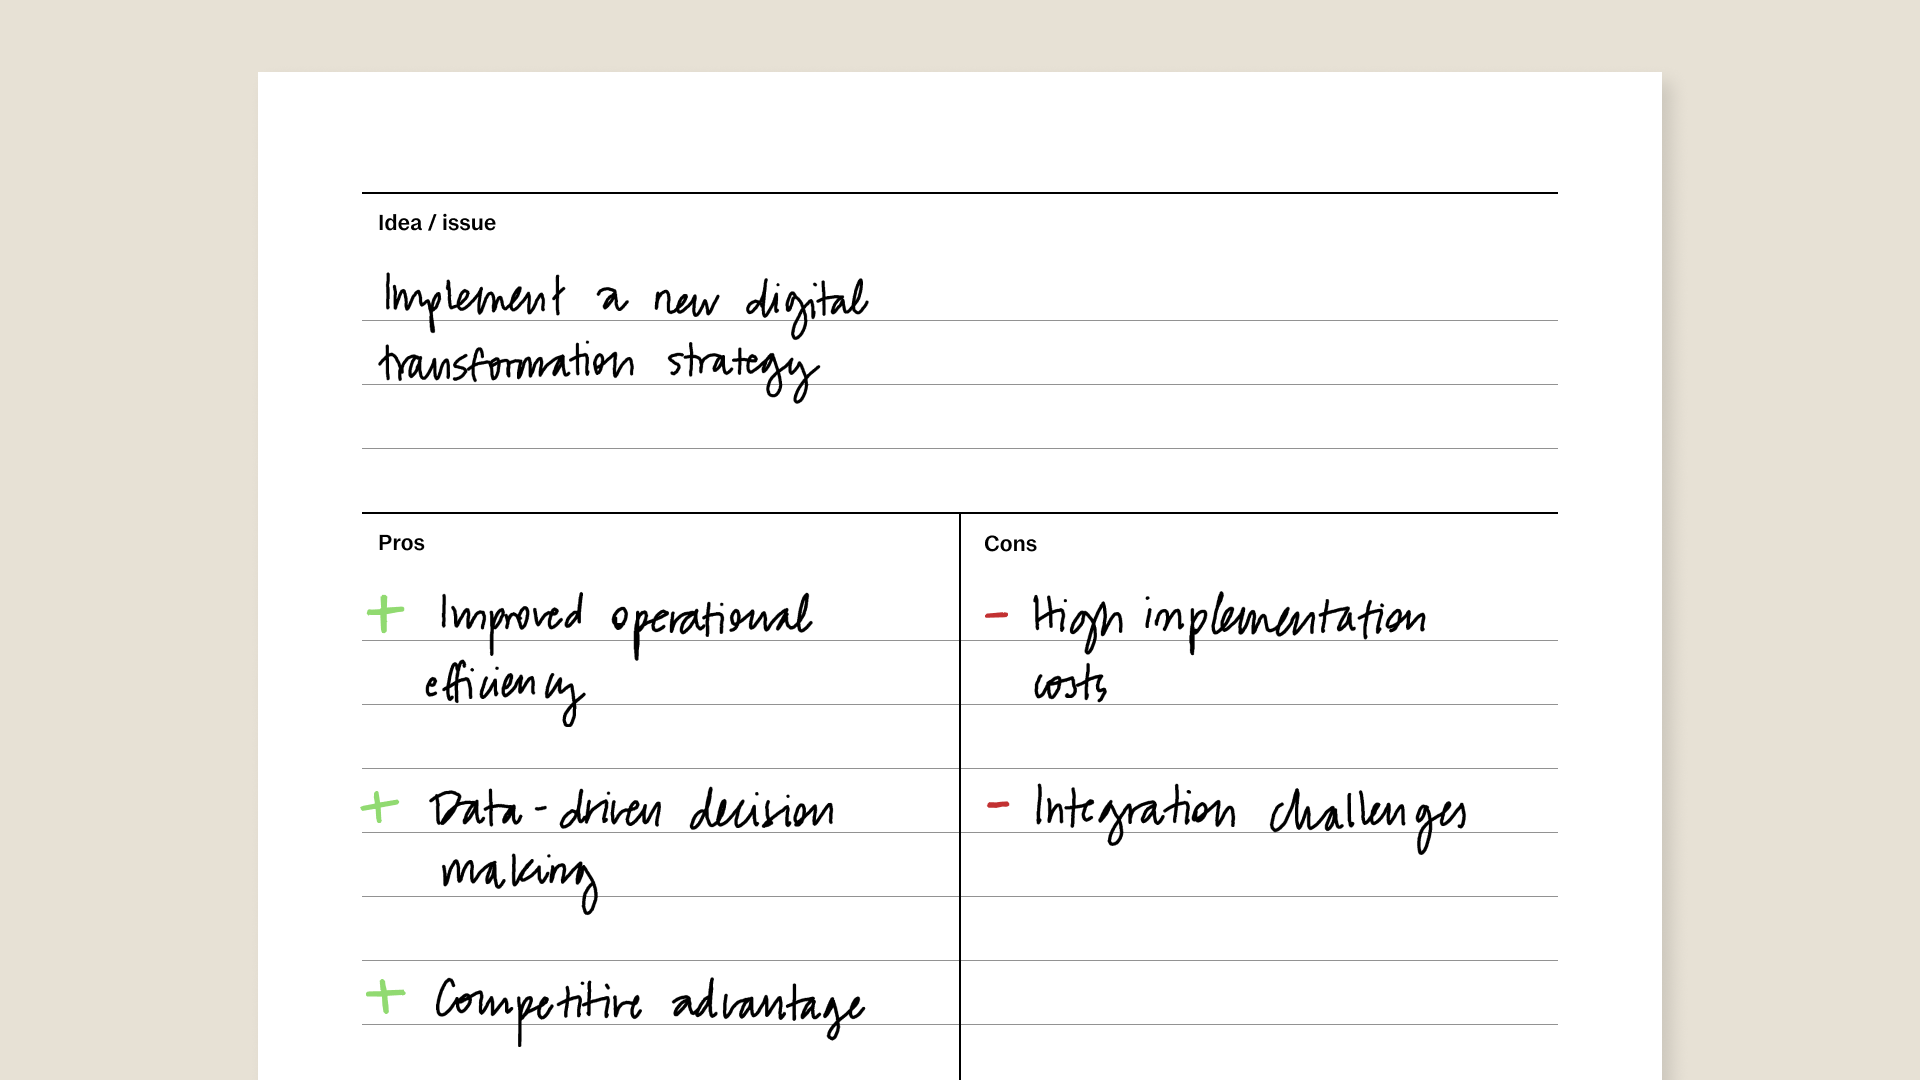 Idea / issue
Implement a new digital
transformation strategy
Pros
+ Improved operational
efficiency
+ Data-driven decision
making
+ Competitive advantage
Cons
- High implementation
costs
- Integration challenges